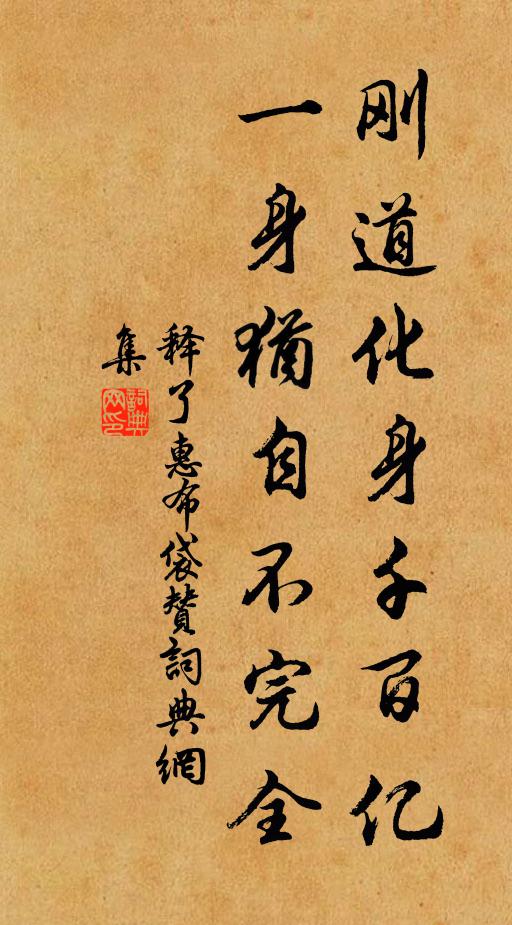 刚道化身千百亿
一身犹自不完全
释了惠布袋赞詞典網
集
詞典网印